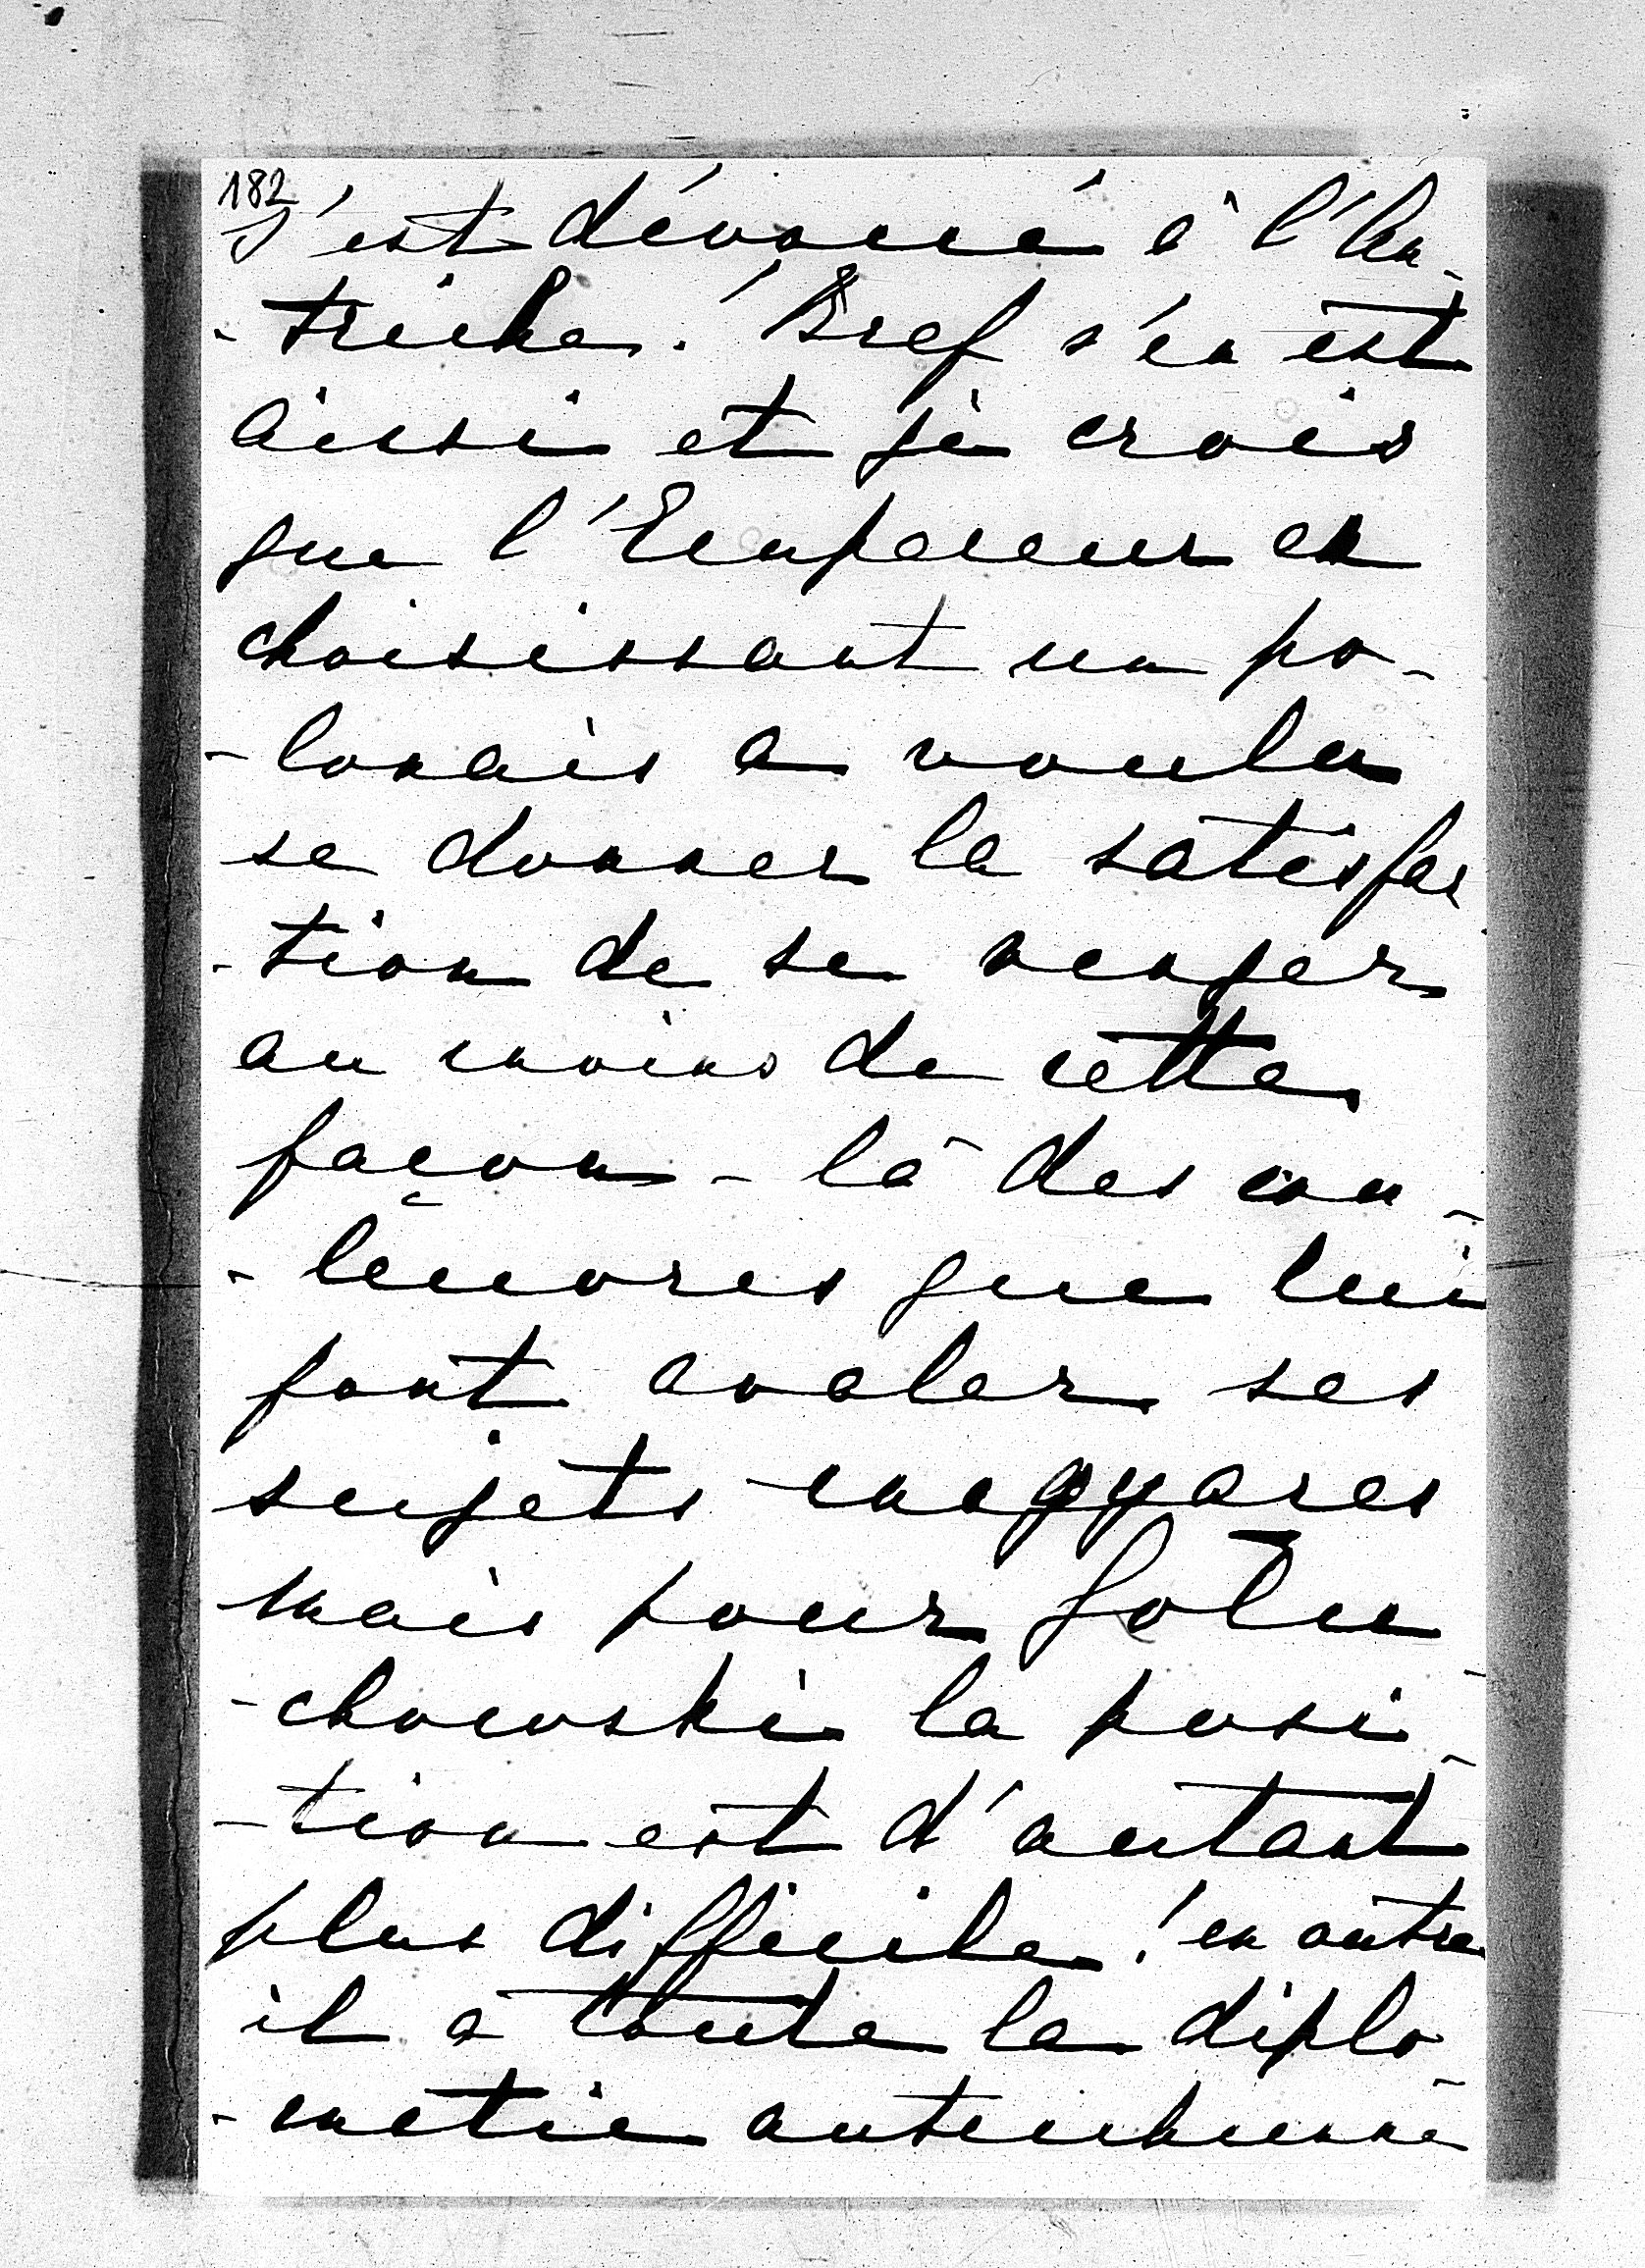 182
s'est dévoué à l'Au-
-triche. Bref s'en est
ainsi et je crois
que l'Empereur en
choisissant un po-
-lonais a voulu
se donner la satisfac
-tion de se venger
au moins de cette
façon-là des cou-
-leuvres que lui
font avaler ses
sujets magyares
mais pour Golu
-chowski la posi-
-tion est d'autant
plus difficile! en outre
il a toute la diplo-
-matie autrichienne